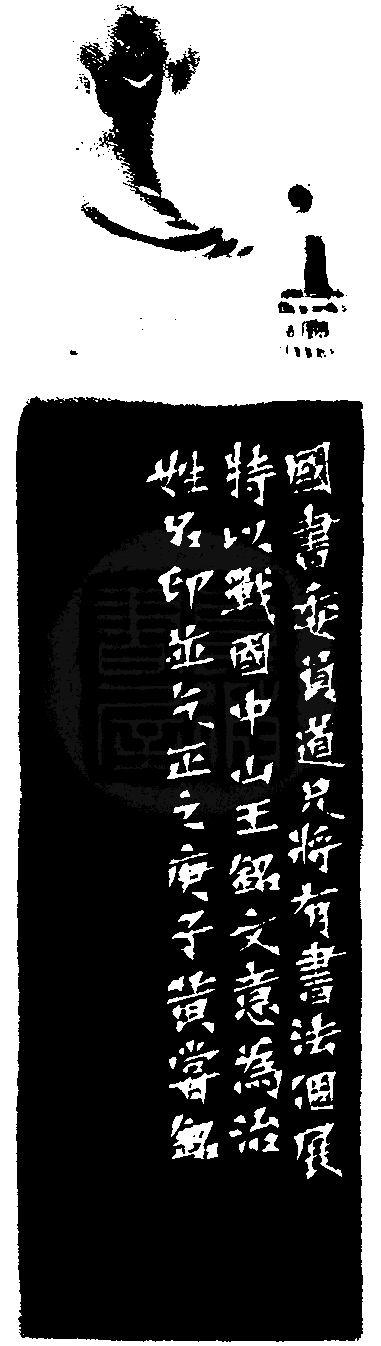 國書委員道兄將有書法個展
特以戰國中山王銘文意為治
姓名印並乞正之庚子黃嘗銘